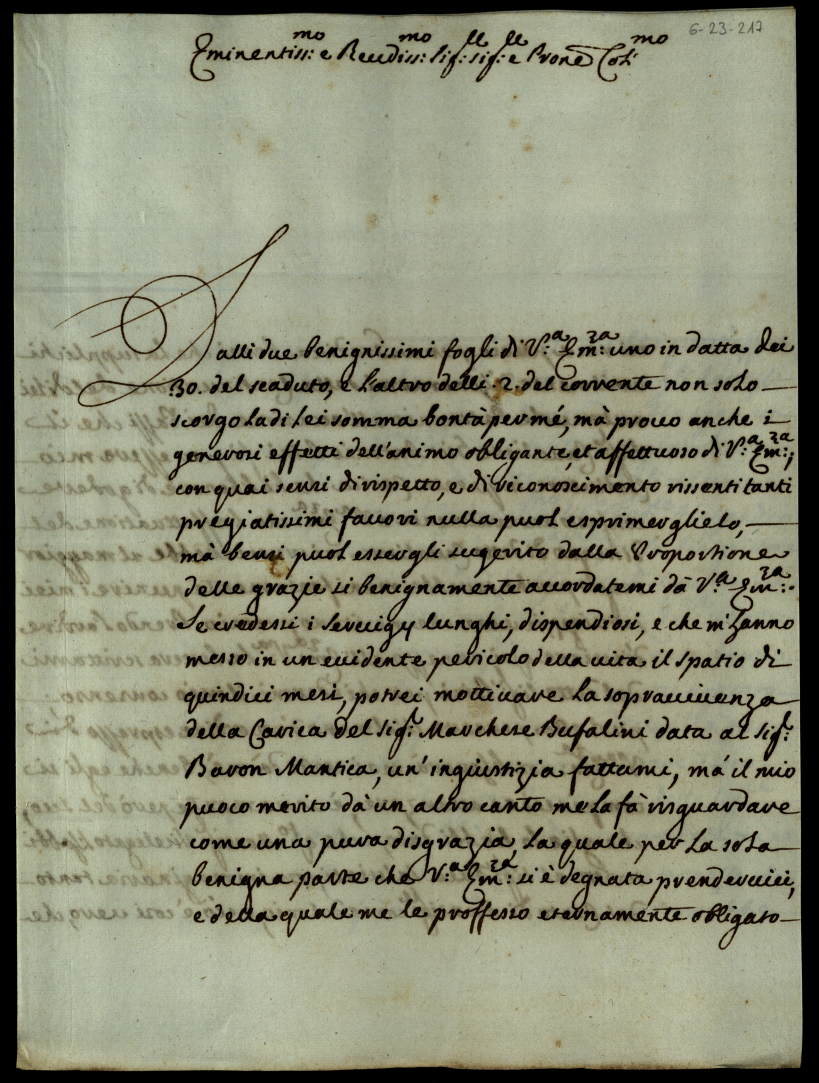 6-23-217
Eminentiss:mo e Reudiss:mo Sig:re sig:re e Prone Col:mo
Dalli due benignissimi fogli di V:a Em:za uno in datta dei
30. del scaduto, e l'altro delli .2. del corrente non solo
scorgo la di lei somma bontà per mé, mà prouo anche i
generosi effetti dell'animo obligante, et affettuoso di V:a Em:za;
con quai sensi di rispetto, e di riconoscimento rissenti tanti
pregiatissimi fauori nulla puol esprimerglielo,
mà bensi puol essergli sugerito dalla Proportione
delle grazie si benignamente accordatemi dà V:a Em:za.
Se credessi i seruigij lunghi, dispendiosi, e che m'hanno
messo in un euidente pericolo della uita il spatio di
quindici mesi, potrei mottiuare la soprauiuenza
della Carica del sig:r Marchese Bufalini data al sig:r
Baron Mantica, un' ingiustizia fattami, má il mio
puoco merito dà un altro canto me la fà risguardare
come una pura disgrazia, la quale per la sola
benigna parte che V:a Em:za si è degnata prenderuici,
e della quale me le proffesso eternamente obligato